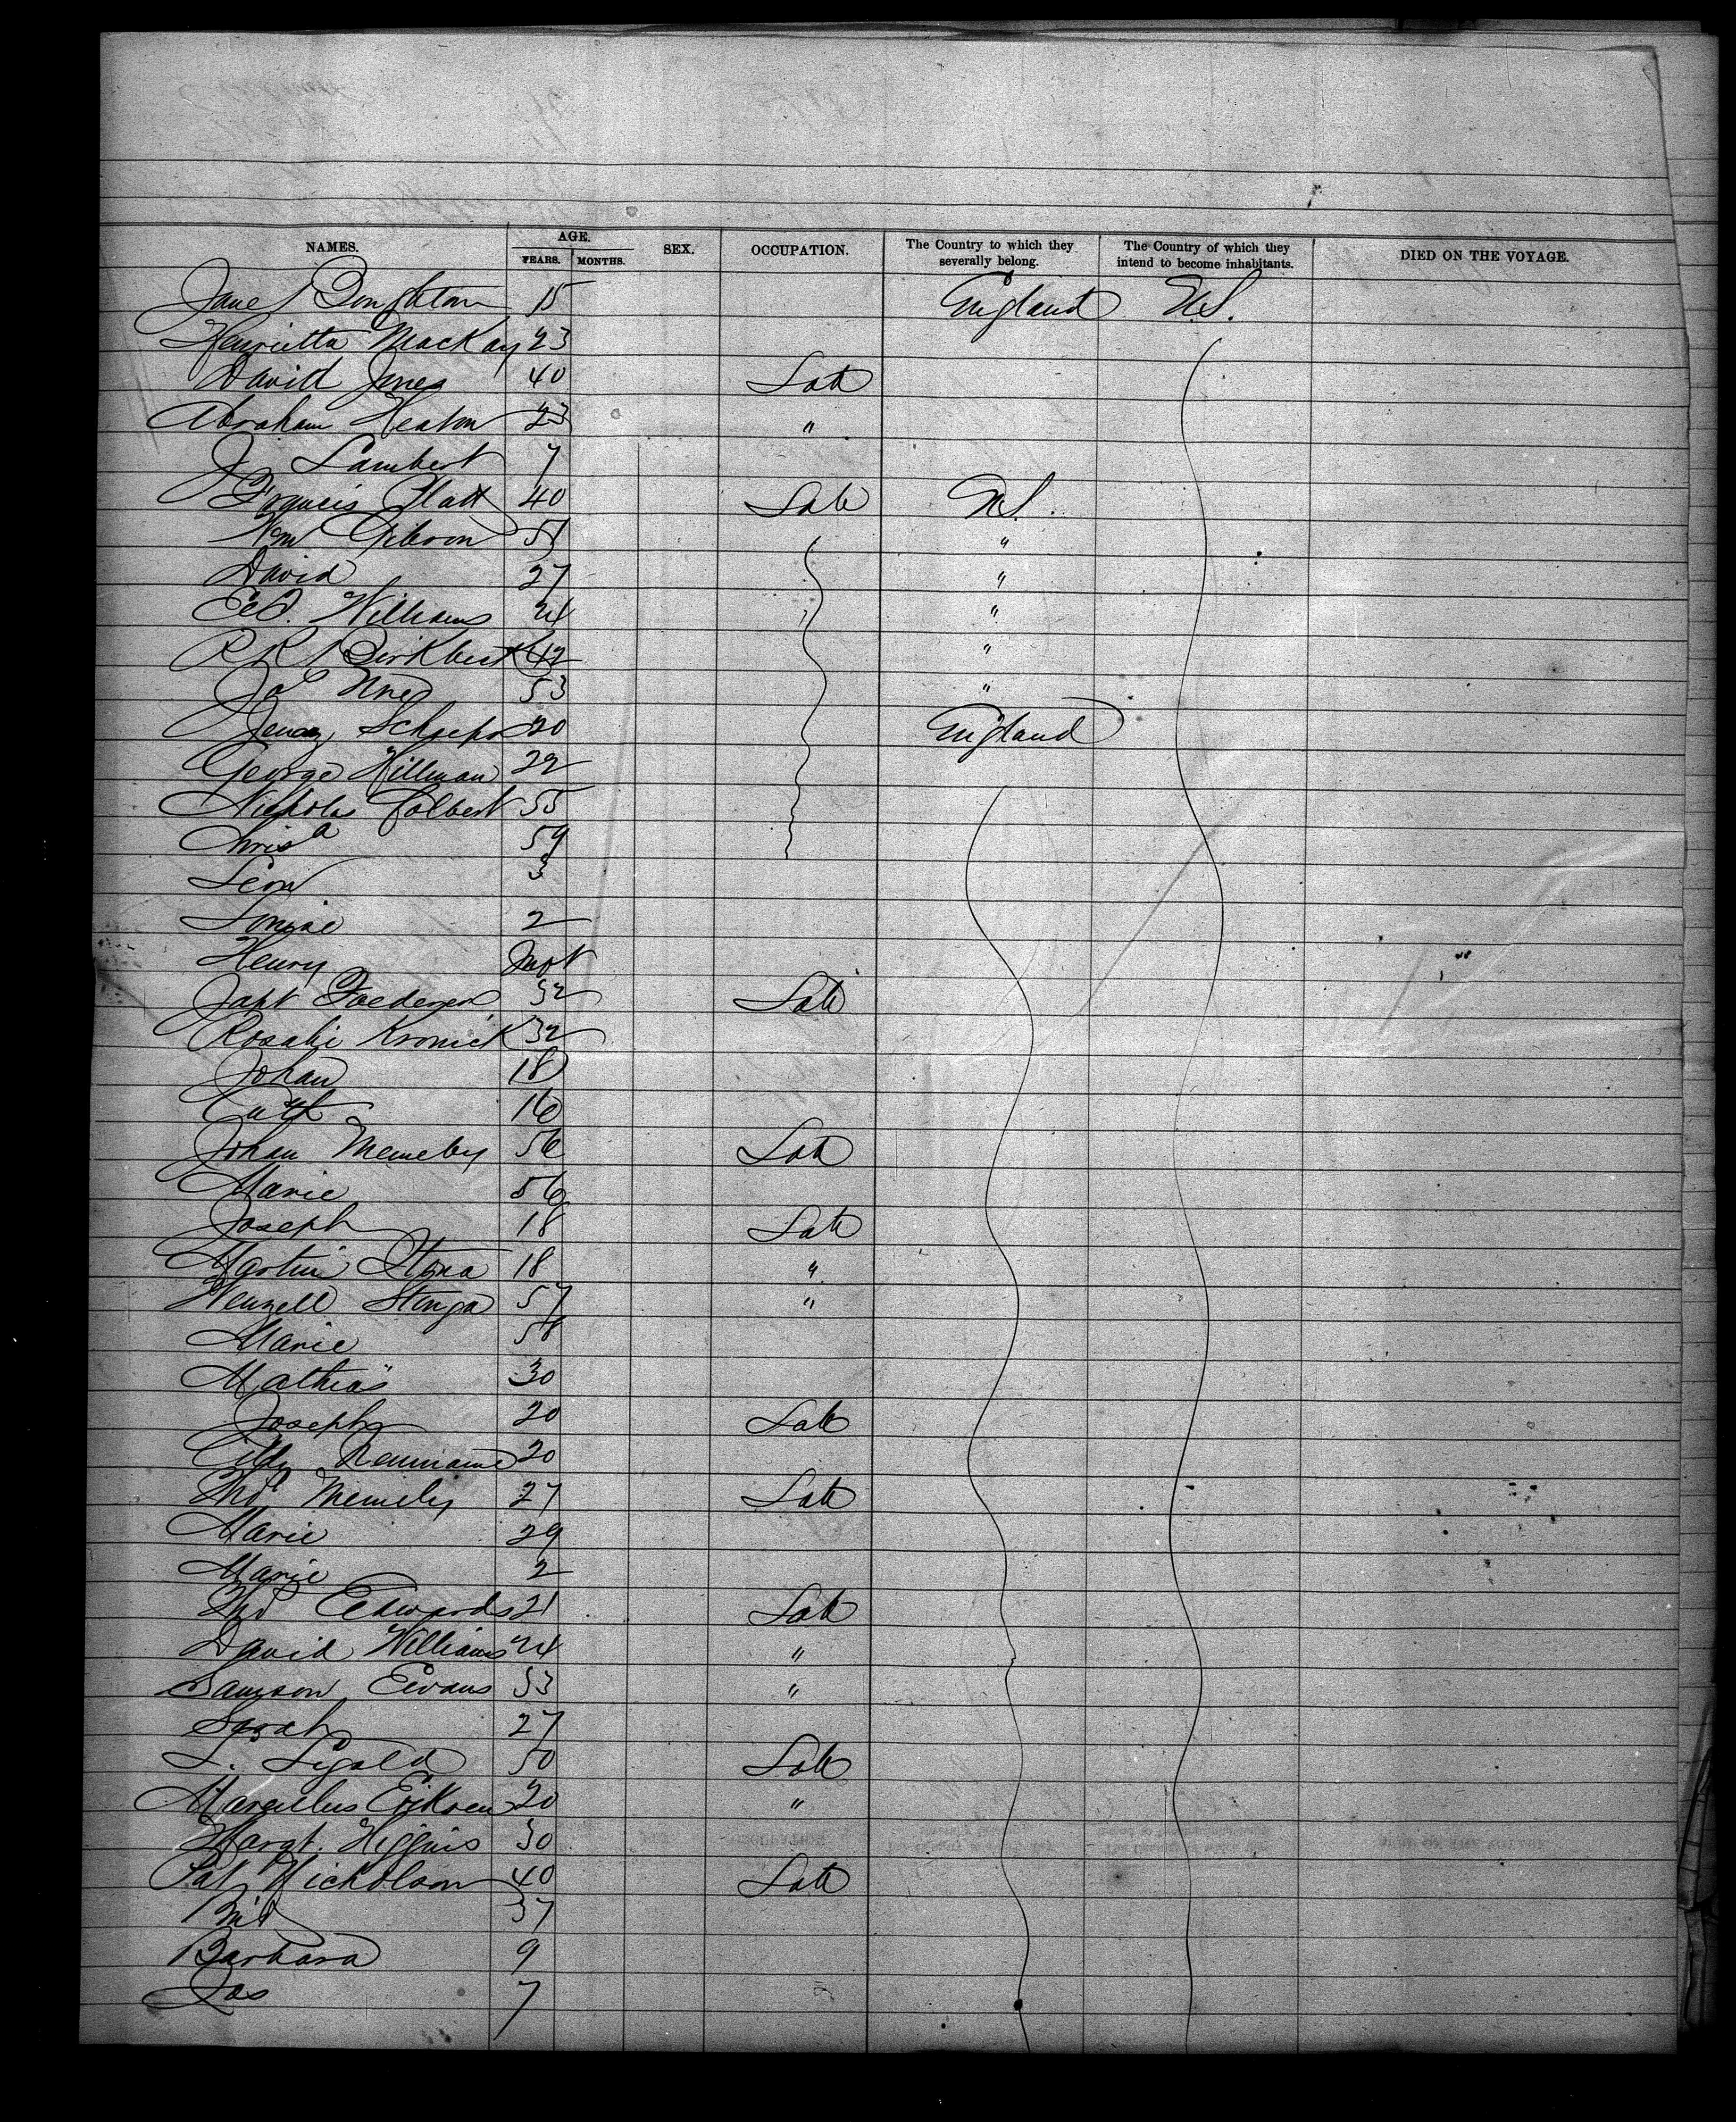 NAMES. AGE. YEARS. MONTHS. SEX. OCCUPATION. The Country to which they severally belong. The Country of which they intend to become inhabitants. DIED ON THE VOYAGE.
Jane Boughton 15 England U.S.
Henrietta MacKay 23
David Jones 40 Lab
Abraham Heaton 23 "
J Lambert 7
Francis Platt 40 Lab U.S.
Wm Gibson 51 "
David 27 "
Ed. Williams 24 "
R R Birkbeck 42 "
Jas 53 "
20 England
George Hillman 22
Nicholas Colbert 55
Chris a 59
Leon 3
Louise 2
Henry Inft
32 Lab
Rosalie Kronick 32
Johan 18
Cath 16
Johan Memeley 56 Lab
Marie 56
Joseph 18 Lab
Martin 18 "
Wenzell Stenga 57 "
Marie 58
Mathias 30
Joseph 20 Lab
20
Thos Memely 27 Lab
Marie 29
Marie 2
Thos Edwards 21 Lab
David Williams 24 "
Samson Evans 33 "
Sarah 27
L. 50 Lab
Marcellus Eriksen 20 "
Margt. Higgins 30
Pat Nicholson 40 Lab
Brid 37
Barbara 9
Jas 7